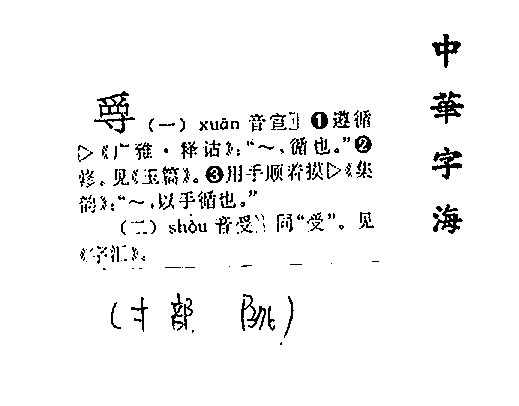 中華字海
(一) xuān 音宣〗❶遵循
▷《广雅·释诂》:“~,循也。”❷
修。见《玉篇》。❸用手顺着摸▷《集
韵》:“~,以手循也。”
(二) shòu 音受〗同“受”。见
《字汇》。
(寸部 )